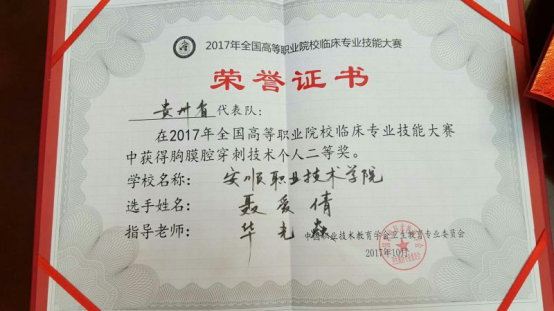 2017年全国高等职业院校临床专业技能大赛
荣誉证书
贵州省代表队：
在2017年全国高等职业院校临床专业技能大赛
中获得胸膜腔穿刺技术个人二等奖。
学校名称： 安顺职业技术学院
选手姓名： 聂爱倩
指导老师： 华光
中国职业技术教育学会卫生教育专业委员会
2017年10月